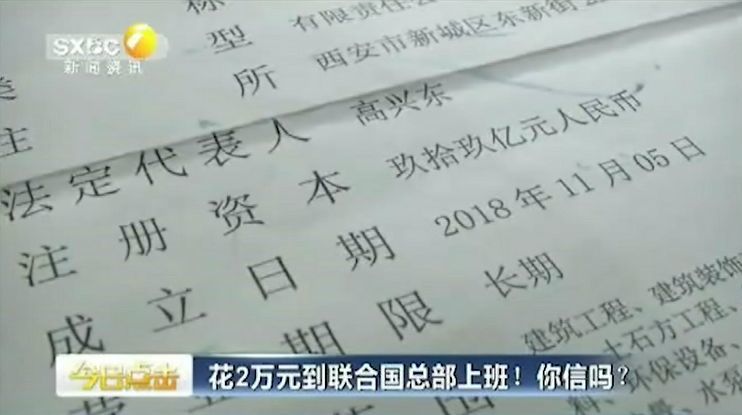 SXBC
新闻资讯
称
型 有限责任公
所 西安市新城区东新街
类
主
法定代表人 高兴东
注册资本 玖拾玖亿元人民币
成立日期 2018年11月05日
期限 长期
建筑工程、建筑装饰
土石方工程、
料、环保设备、
水泵
今日点击
花2万元到联合国总部上班！你信吗？